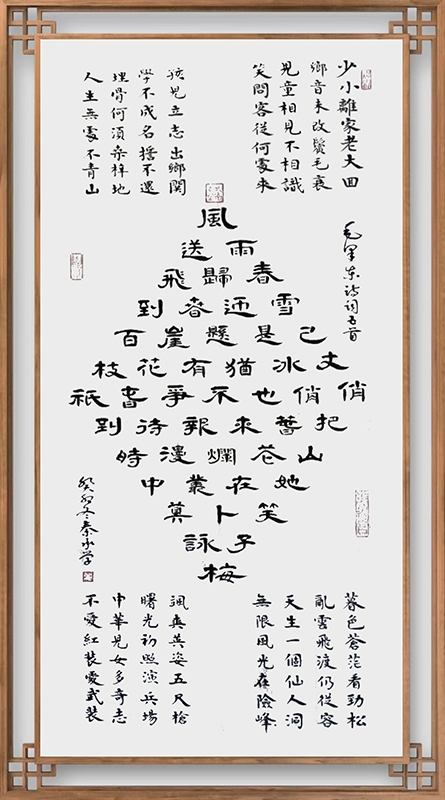 少小離家老大回
鄉音未改鬢毛衰
兒童相見不相識
笑問客從何處來
孩兒立志出鄉關
學不成名誓不還
埋骨何須桑梓地
人生無處不青山
毛澤东诗词五首
風
雨送
春歸飛
雪迎春到
已是懸崖百
丈冰猶有花枝
俏俏也不爭春祇
把春來報待到
山花爛漫時
她在叢中
笑卜算
子詠
梅
暮色蒼茫看勁松
亂雲飛渡仍從容
天生一個仙人洞
無限風光在險峰
颯爽英姿五尺槍
曙光初照演兵場
中華兒女多奇志
不愛紅裝愛武裝
癸卯冬秦